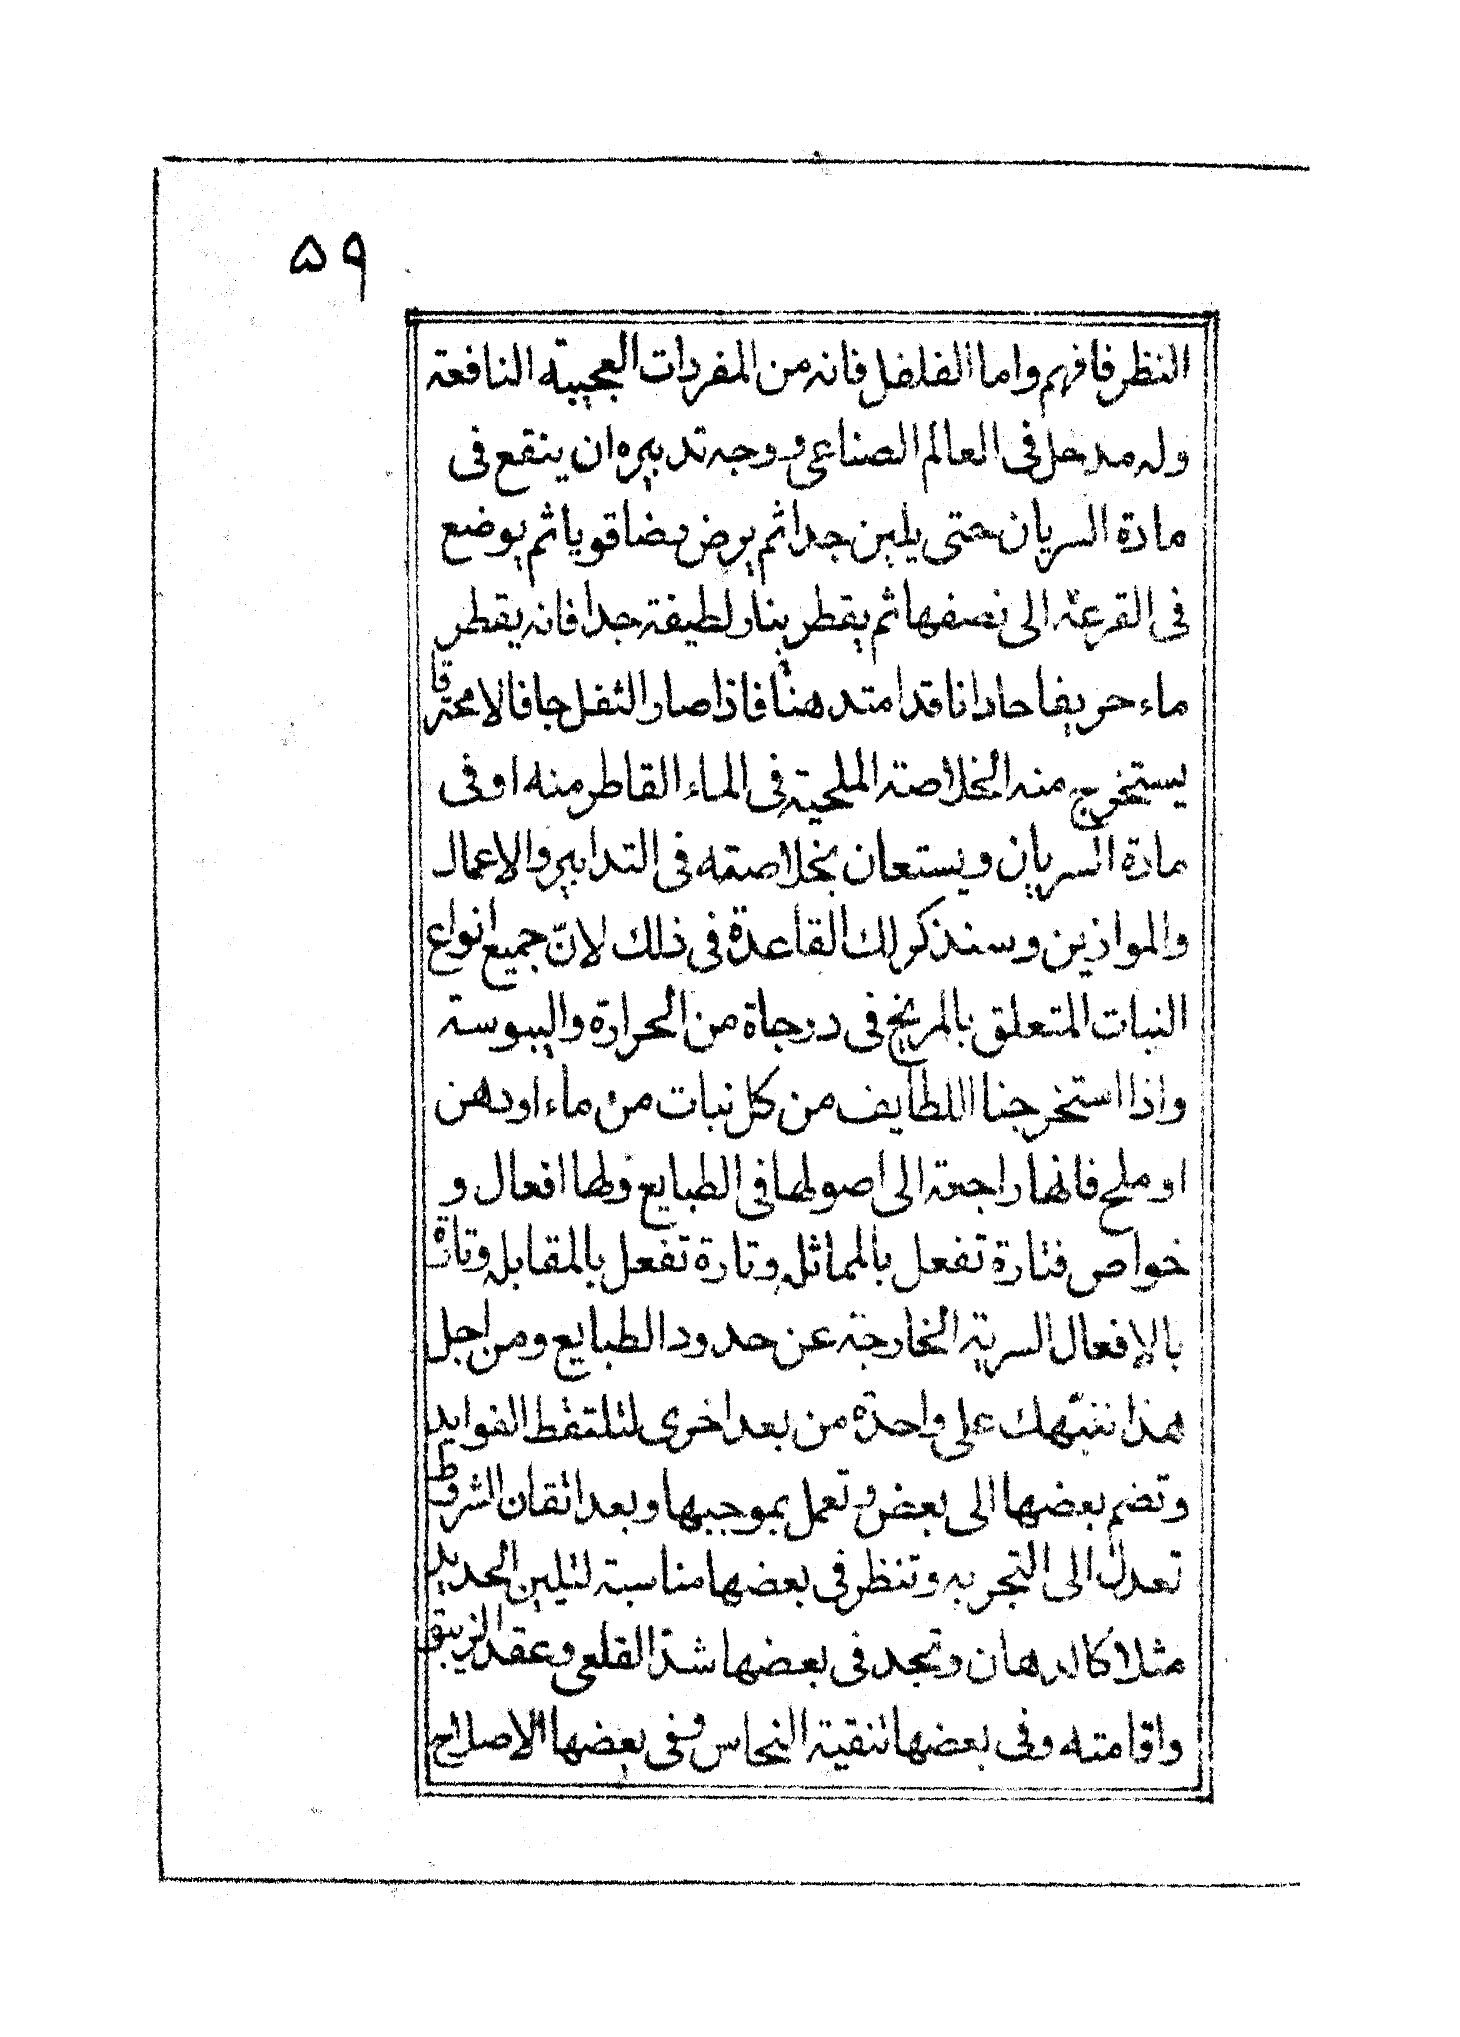 ۵۹
النظر فافهم واما الفلفل فانه من المفردات العجيبة النافعة
وله مدخل فى العالم الصناعى ووجه تدبيره ان ينقع فى
مادة السريان حتى يلين جدا ثم يرض رضا قويا ثم يوضع
فى القرعة الى نصفها ثم يقطر بنار لطيفة جدا فانه يقطر
ماء حريفا حادا نافدا متد هنا فاذا صار الثفل جافا لا محترقا
يستخرج منه الخلاصة الملحية فى الماء القاطر منه او فى
مادة السريان ويستعان بخلاصته فى التدابير والاعمال
والموازين وسنذكر لك القاعدة فى ذلك لانّ جميع انواع
النبات المتعلق بالمريخ فى درجاة من الحرارة واليبوسة
واذا استخرجنا اللطايف من كل نبات من ماء او دهن
او ملح فانها راجعة الى اصولها فى الطبايع ولها افعال و
خواص فتارة تفعل بالمماثله وتارة تفعل بالمقابله وتارة
بالافعال السرية الخارجة عن حدود الطبايع ومن اجل
هذا ننبّهك على واحدة من بعد اخرى لتلتقط الفوايد
وتضم بعضها الى بعض وتعمل بموجبها وبعد اتقان الشروط
تعدل الى التجربه وتنظر فى بعضها مناسبة لتليين الحديد
مثلا كالدهان وتجد فى بعضها شدة القلعى وعقد الزيبق
واقامته وفى بعضها تنقية النحاس وفى بعضها الاصلاح